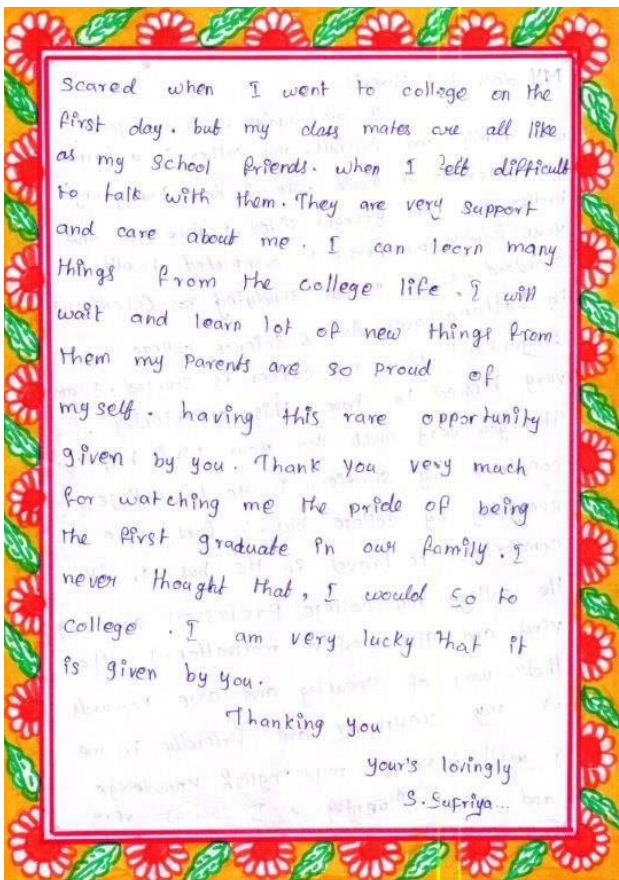 Scared when I went to college on the
first day. but my class mates are all like
as my School friends. when I felt difficult
to talk with them. They are very support
and care about me. I can learn many
things from the college life. I will
wait and learn lot of new things from
them my parents are so proud of
my self. having this rare opportunity
given by you. Thank you very much
for watching me the pride of being
the first graduate in our family. I
never thought that, I would go to
college. I am very lucky that it
is given by you.
Thanking you
your's lovingly
S. Sufriya...